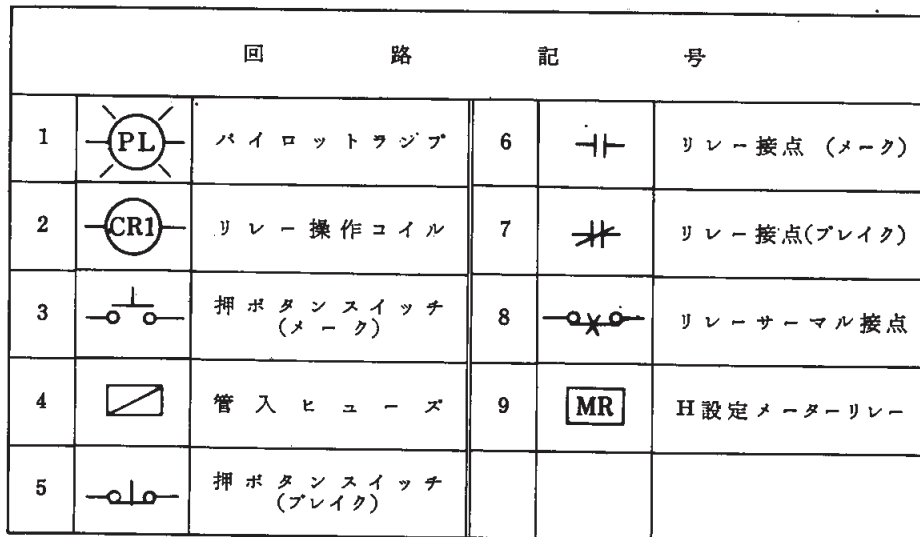 回路記号
1 PL パイロットランプ 6 リレー接点 (メーク)
2 CR1 リレー操作コイル 7 リレー接点(ブレイク)
3 押ボタンスイッチ
(メーク) 8 リレーサーマル接点
4 管入ヒューズ 9 MR H設定メーターリレー
5 押ボタンスイッチ
(ブレイク)